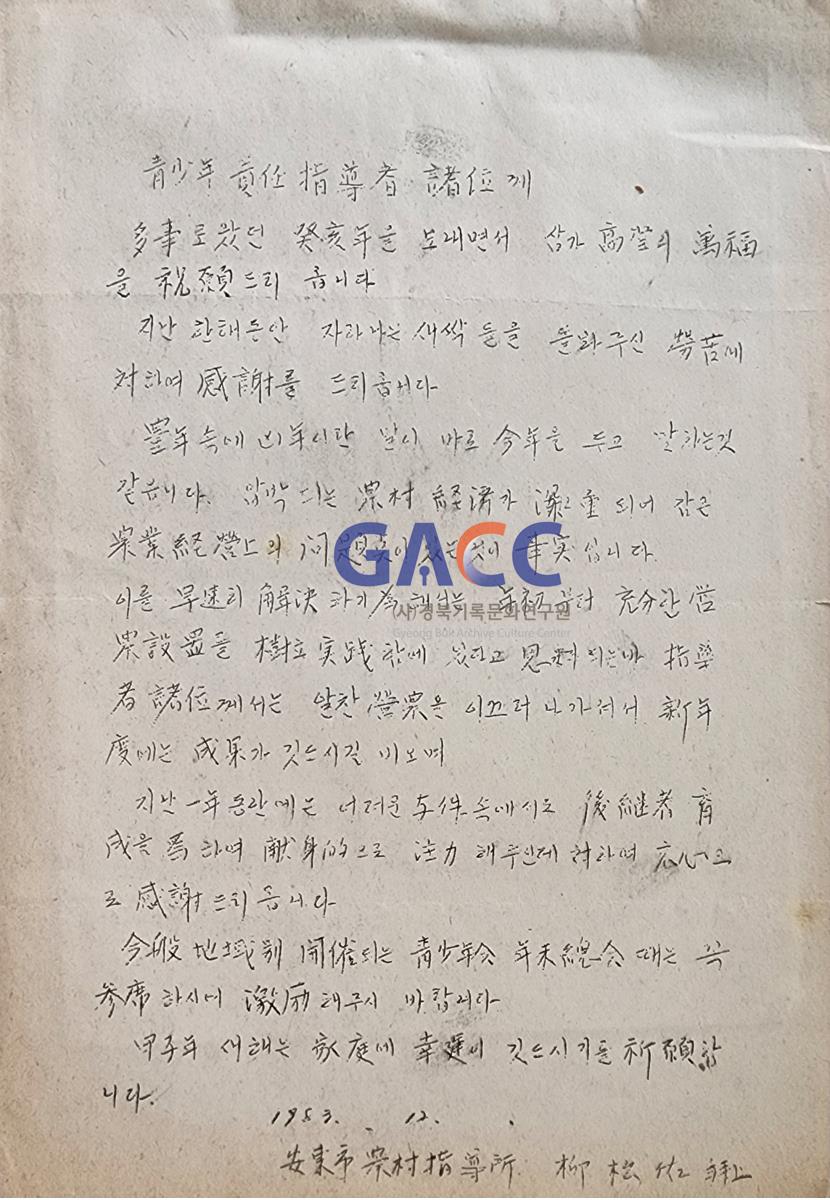 靑少年 責任 指導者 諸位께
多事로왔던 癸亥年을 보내면서 삼가 高堂의 萬福
을 祝願드리옵니다
지난 한해동안 자라나는 새싹들을 돌봐주신 勞苦에
対하여 感謝를 드리옵니다
豊年속에 凶年이란 말이 바로 今年을 두고 말하는것
같읍니다. 압박되는 農村 経済가 深重되어 감은
農業経營上의 问題点이 있는것이 事実입니다.
이를 早速히 解決하기 為해서는 年初부터 充分한 営
農設置를 樹立实践함에 있다고 思料되는바 指導
者 諸位께서는 알찬 營農을 이끄러 나가셔서 新年
度에는 成果가 깃드시길 비오며
지난 一年동안에는 어려운 与件속에서도 後継者 育
成을 爲하여 献身的으로 注力해주신데 対하여 衷心으
로 感謝드리옵니다
今般 地域別 開催되는 靑少年会 年末總会때는 꼭
參席하시여 激励해주시 바랍니다
甲子年 새해는 家庭에 幸運이 깃드시기를 祈願합
니다.
1983. 12. .
安東市 農村指導所 柳 佐 拜上
GACC
(사)경북기록문화연구원
Gyeong Buk Archive Culture Center